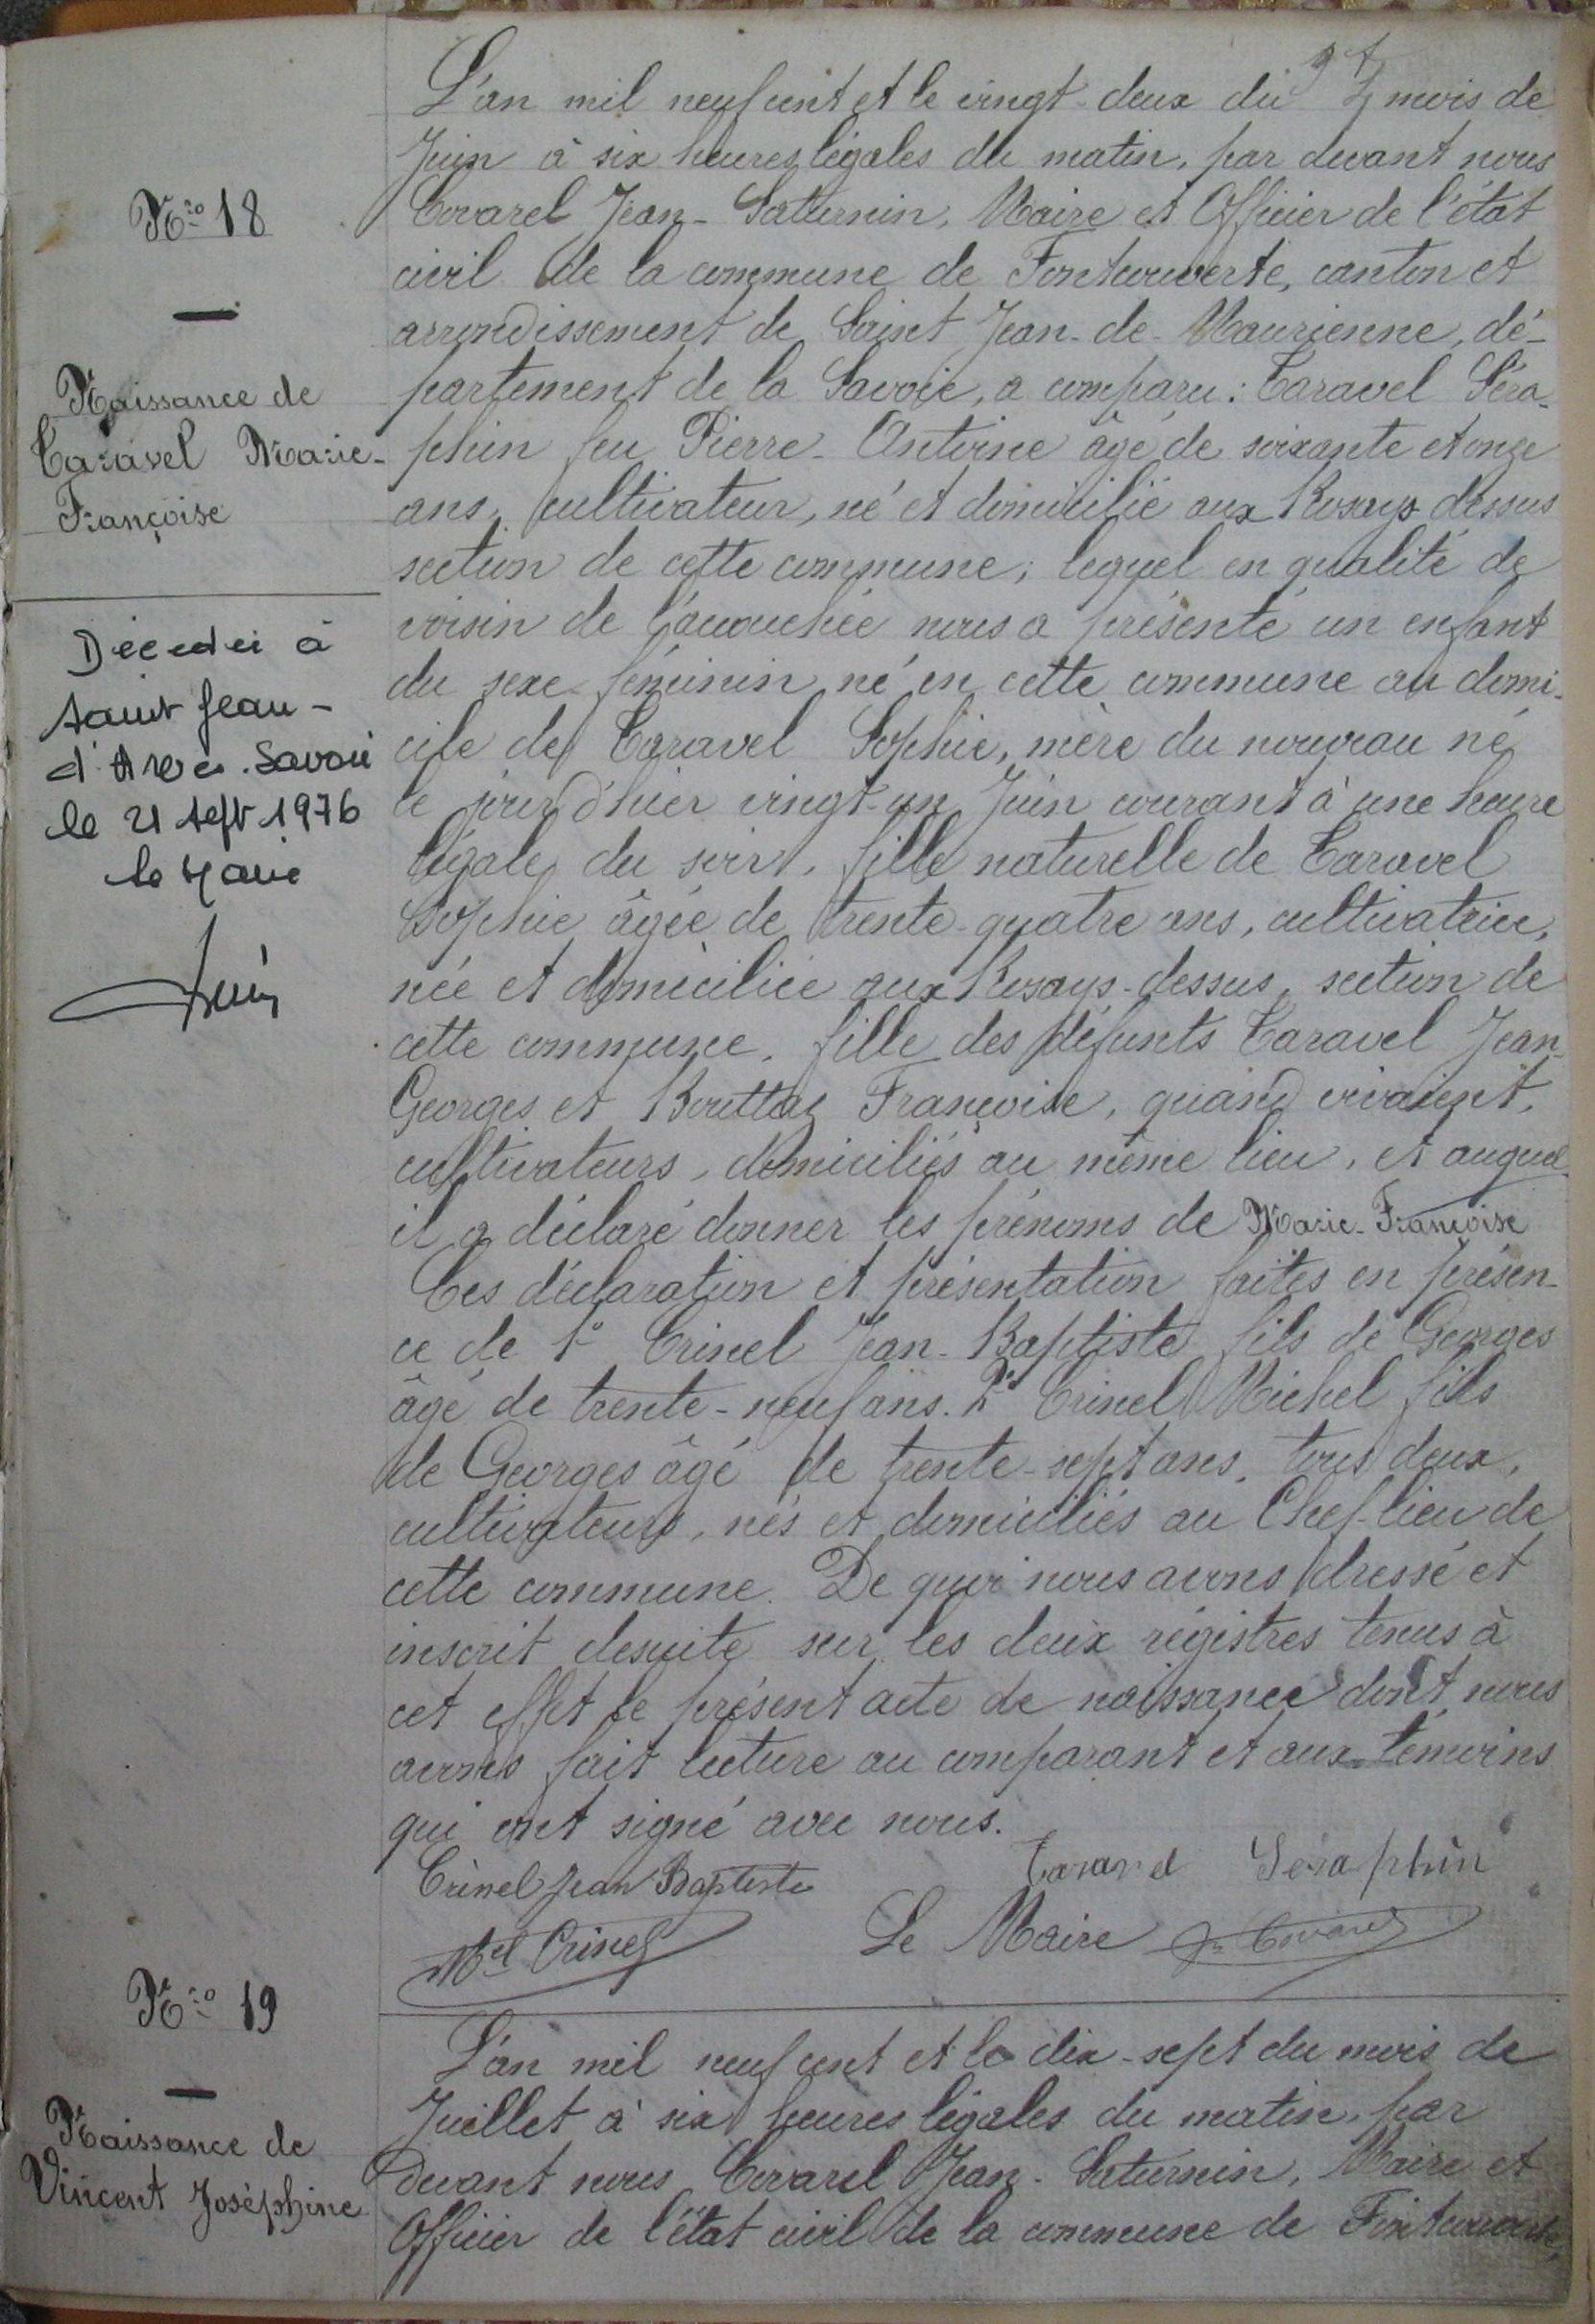 N.ro 18
Naissance de
Taravel Marie-
Françoise
Décédée à
Saint Jean-
d'Arves. Savoie
le 21 sept 1976
le Maire
L'an mil neuf cent et le vingt-deux du mois de
Juin à six heures légales du matin, par devant nous
Covarel Jean-Saturnin, Maire et Officier de l'état
civil de la commune de Fontcouverte, canton et
arrondissement de Saint Jean-de-Maurienne, dé-
partement de la Savoie, a comparu: Taravel Séra-
phin feu Pierre-Antoine âgé de soixante et onze
ans, cultivateur, né et domicilié aux Rosays dessus
section de cette commune; lequel en qualité de
voisin de l'accouchée nous a présenté un enfant
du sexe féminin né en cette commune au domi-
cile de Taravel Sophie, mère du nouveau né
le jour d'hier vingt-un Juin courant à une heure
légale du soir, fille naturelle de Taravel
Sophie âgée de trente-quatre ans, cultivatrice,
née et domiciliée aux Rosays-dessus, section de
cette commune, fille des défunts Taravel Jean-
Georges et Bouttaz Françoise, quand vivaient,
cultivateurs, domiciliés au même lieu, et auquel
il a déclaré donner les prénoms de Marie-Françoise
Ces déclaration et présentation faites en présen-
ce de 1° Crinel Jean-Baptiste fils de Georges
âgé de trente-neuf ans. 2° Crinel Michel fils
de Georges âgé de trente-sept ans, tous deux,
cultivateurs, nés et domiciliés au Chef-lieu de
cette commune. De quoi nous avons dressé et
inscrit desuite sur les deux régistres tenus à
cet effet le présent acte de naissance dont nous
avons fait lecture au comparant et aux témoins
qui ont signé avec nous.
Crinel Jean Baptiste Taravel Séraphin
Mel Crinel Le Maire Jn Covarel
N.ro 19
Naissance de
Vincent Joséphine
L'an mil neuf cent et le dix-sept du mois de
Juillet à six heures légales du matin, par
devant nous Covarel Jean-Saturnin, Maire et
Officier de l'état civil de la commune de Fontcouverte,